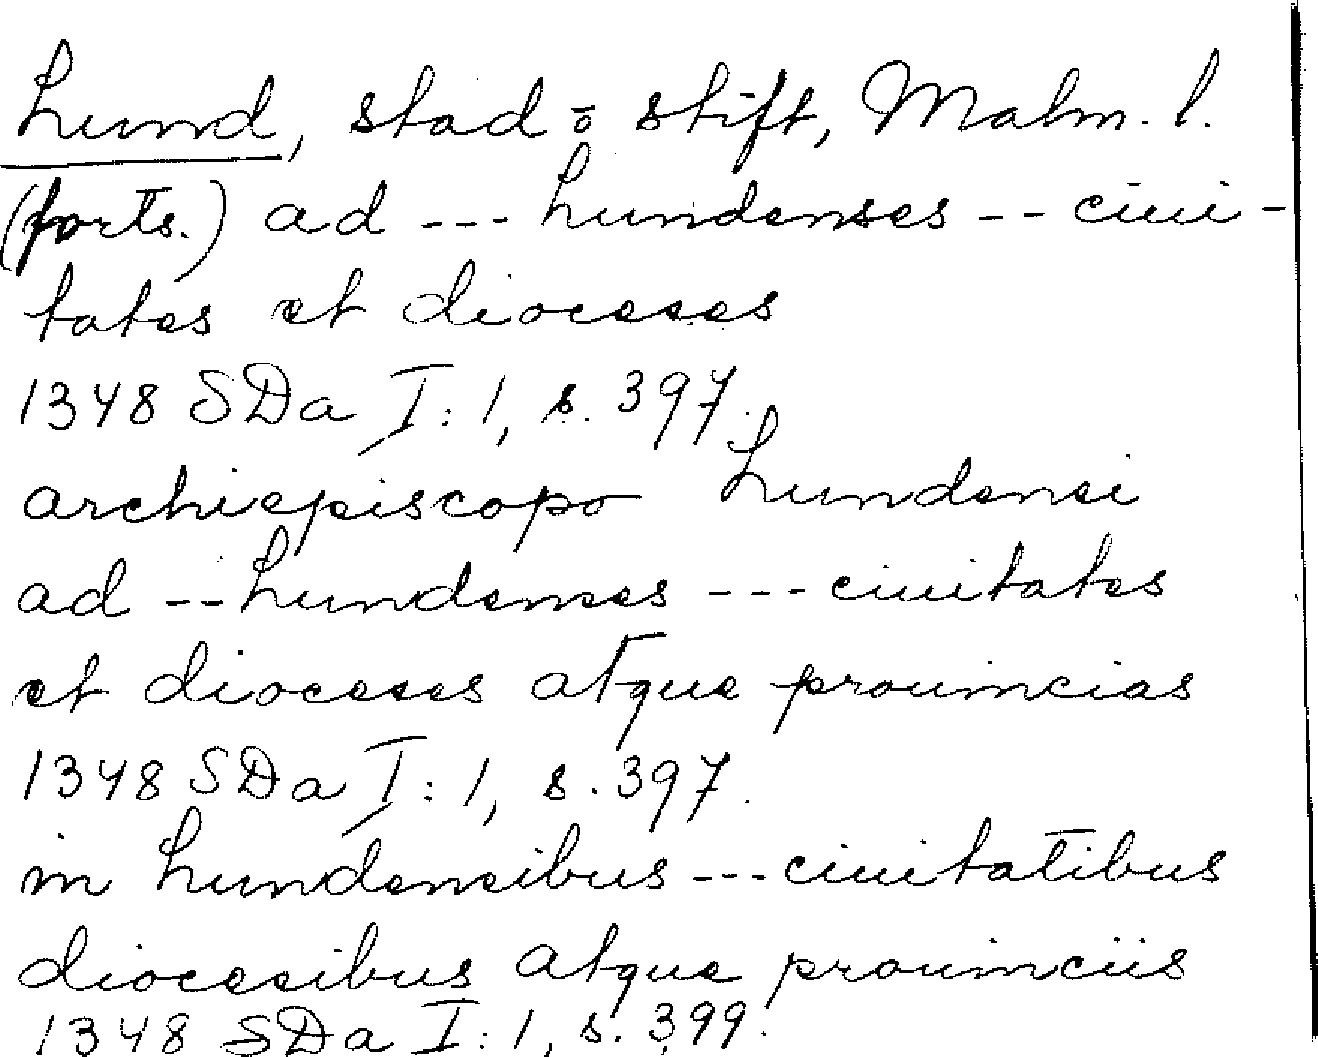 Lund, stad o stift, Malm. l.
(forts.) ad --- Lundenses -- ciui-
tates et dioceses
1348 SDa I:1, s. 397.
archiepiscopo Lundensi
ad -- Lundenses --- ciuitates
et dioceses atque prouincias
1348 SDa I:1, s. 397.
in Lundensibus --- ciuitatibus
diocesibus atque prouinciis
1348 SDa I:1, s. 399.